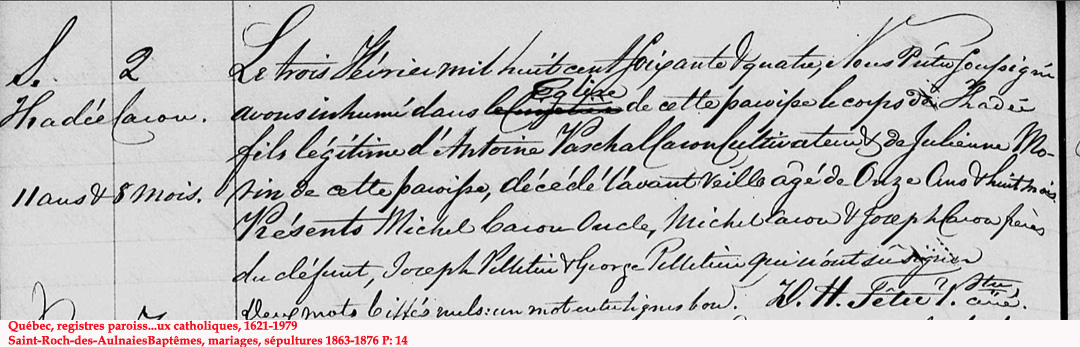 S. 2
Thadée Caron.
11 ans & 8 mois.
Le trois Février mil huit cent soixante & quatre, Nous Prêtre Soussigné
avons inhumé dans Eglise de cette paroisse le corps de Thadée
fils légitime d'Antoine Paschal Caron Cultivateur & de Julienne Mo-
rin de cette paroisse, décédé l'avant veille agé de Onze Ans & huit mois.
Présents Michel Caron Oncle, Michel Caron & Joseph Caron frères
du défunt, Joseph Pelletier & George Pelletier qui n'ont su signer
Deux mots biffés nuls: un mot entre lignes bon. D. H. Têtu Ptre curé.
Québec, registres paroiss...ux catholiques, 1621-1979
Saint-Roch-des-AulnaiesBaptêmes, mariages, sépultures 1863-1876 P: 14